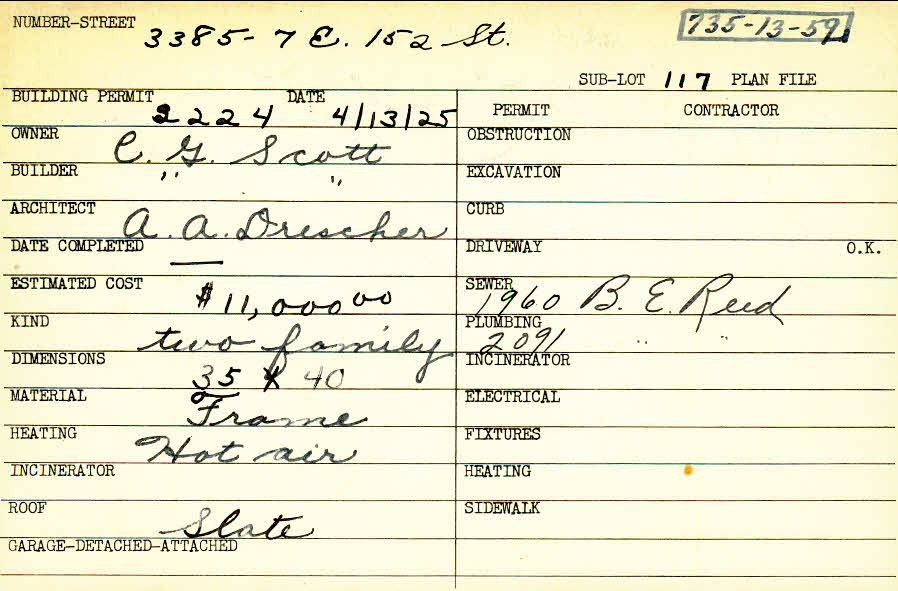 NUMBER-STREET 3385-7 E. 152 St.
735-13-59
SUB-LOT 117 PLAN FILE
BUILDING PERMIT 2224 DATE 4/13/25
OWNER C. G. Scott
BUILDER " "
ARCHITECT A. A. Drescher
DATE COMPLETED —
ESTIMATED COST $11,000.00
KIND two family
DIMENSIONS 35 x 40
MATERIAL Frame
HEATING Hot air
INCINERATOR
ROOF Slate
GARAGE-DETACHED-ATTACHED
PERMIT CONTRACTOR
OBSTRUCTION
EXCAVATION
CURB
DRIVEWAY O.K.
SEWER 1960 B. E. Reed
PLUMBING 2091 " "
INCINERATOR
ELECTRICAL
FIXTURES
HEATING
SIDEWALK